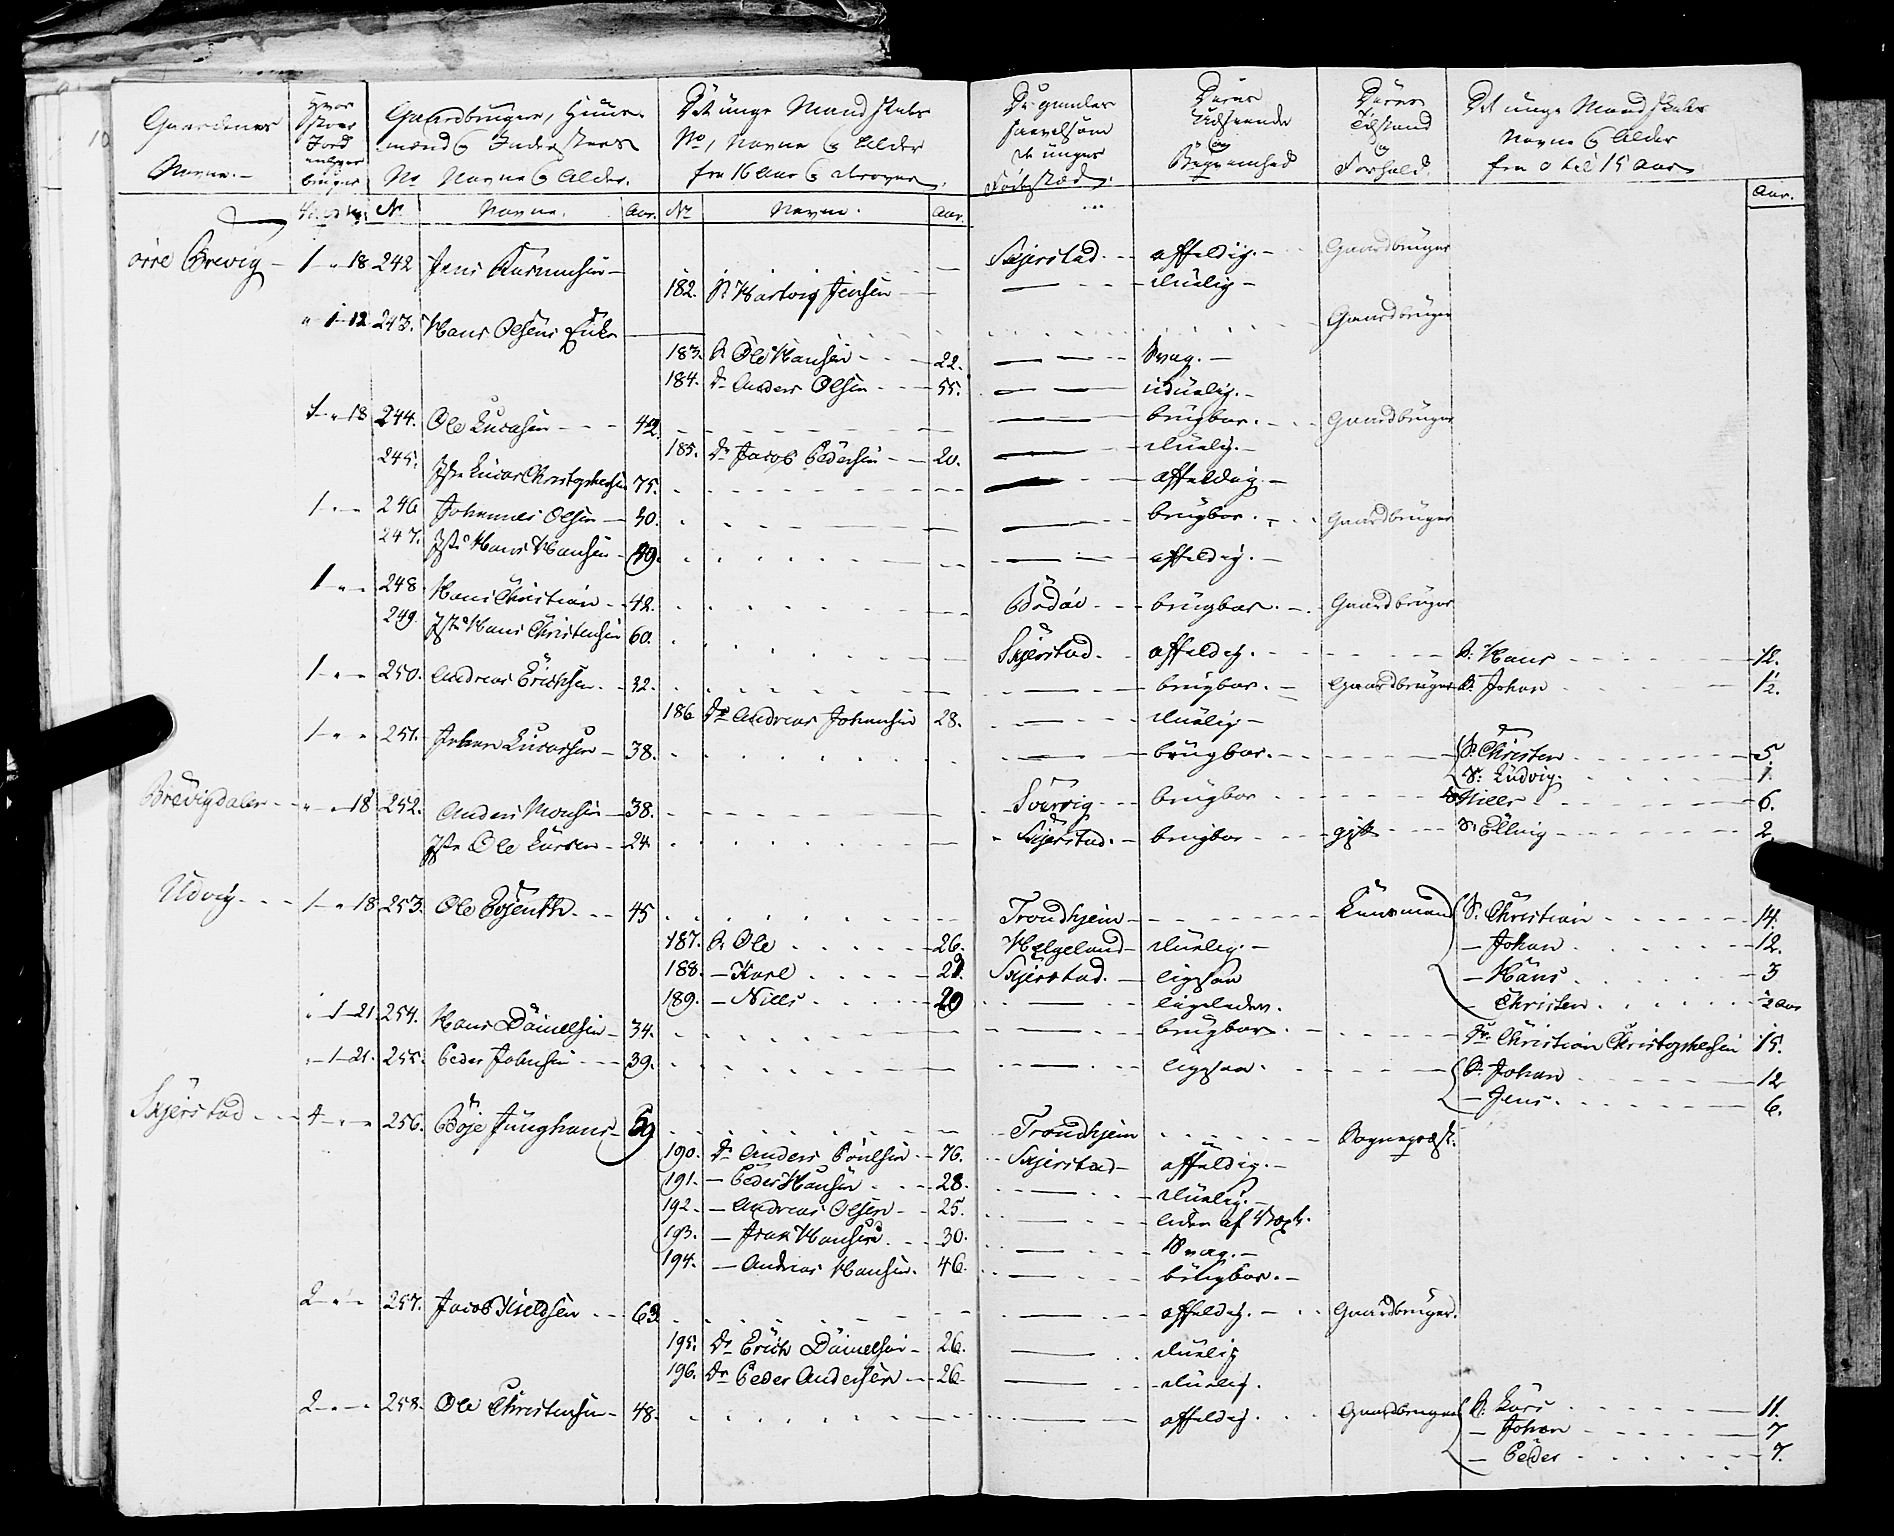 10
Gaardenes Navne.-
Hvor stor Jord enhver bruger
Gaardbrugere, Huusmænd & Inderster No Navne & Alder.
Det unge Mandskabs No, Navne & Alder fra 16 Aar &
De gamles saavelsom de unges Fødested.
Deres Udseende og Beqvemhed
Deres Tilstand og Forhold.
Det unge Mandskabs Navne & Alder fra 0 til 15 Aar
No Navne. Aar. No Navne. Aar. Aar.
Brevig 1 " 18 242 Jens Rasmusen Skjerstad. affeldig. Gaardbruger
182. S. Hartvig Jensen duelig
" 1 12 243. Hans Olsens Enke Gaardbruger
183. S. Ole Hansen 22. svag.
184. Dr Anders Olsen 55. uduelig.
1 " 18 244. Ole Lucasen 42. brugbar. Gaardbruger
185. Dr Jacob Pedersen 20. duelig.
245. Jstr Lucas Christophersen 75. affeldig.
1 " " 246 Johannes Olsen 30. brugbar. Gaardbruger
247. Jstr Hans Hansen 49. affeldig.
1 " " 248 Hans Christian 42. Bodøe brugbar. Gaardbruger
249. Jstr Hans Christensen 60. Skjerstad. affeldig. S. Hans 12.
1 " " 250. Andreas Erichsen 32. brugbar. Gaardbruger S. Johan 1½.
186 Dr Andreas Johansen 28. duelig
1 " " 251. Johan Lucassen 38. brugbar. S. Christen 5.
S. Ludvig. 1.
Brevigdalen " " 18 252. Anders Monsen 38. brugbar Nills 6.
Jstr Ole Larsen 24 Skjerstad. brugbar gift S. Elling 2
Udvig 1 " 18 253. Ole 45 Trondhjem S. Christian 14.
187. S. Ole 26. Helgeland duelig. Johan 12.
188. Karl 21. Skjerstad. ligesaa Hans 3
189. Nills 20 ligeledes. Christen ½ aar
" 1 21 254. Hans Danielsen 34. brugbar Christian Christophersen 15.
" 1 21. 255. Peder Johnsen 39. ligesaa. S. Johan 12
Jens. 6.
Skjerstad 4 " " 256. Böje Junghans 59 Trondhjem Sognepræst.
190. Dr Anders Poulsen 76. Skjerstad affeldig.
191. Peder Hansen 28. duelig.
192. Andreas Olsen 25. liden af Vext.
193. Isak Hansen 30. Svag.
194. Andreas Hansen. 46. brugbar.
2 " " 257. Jacob Kieldsen 63 affeldig. Gaardbruger.
195. Dr Erich Danielsen 26. duelig
196. Dr Peder Andersen 26 duelig.
2 " " 258. Ole Christensen 48. affeldig Gaardbruger S. Lars 11.
Johan 7
Peder 7.